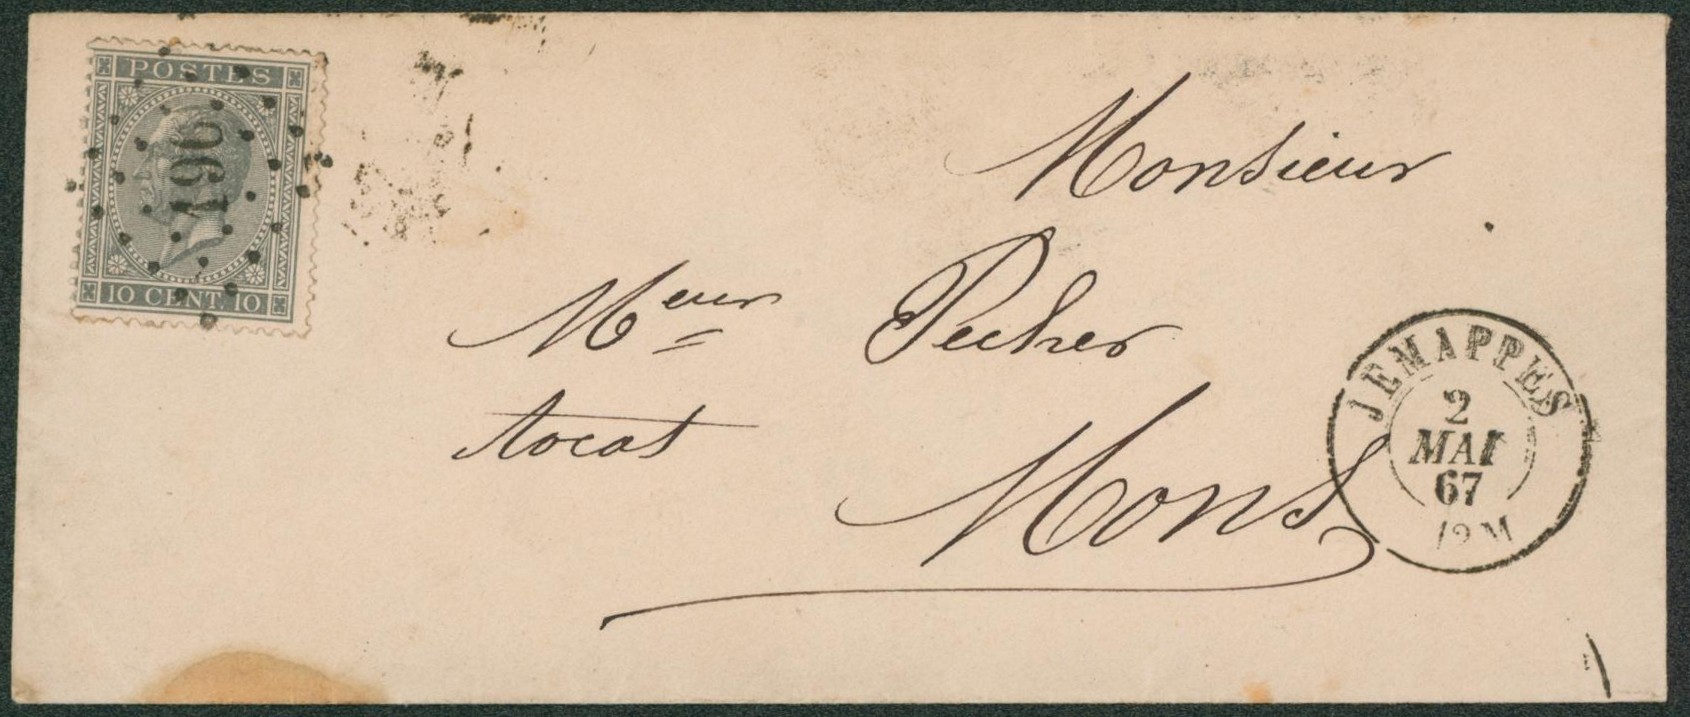 POSTES
196
10 CENT. 10
Monsieur
Meur Pecher
Avocat
Mons
JEMAPPES
2
MAI
67
12M